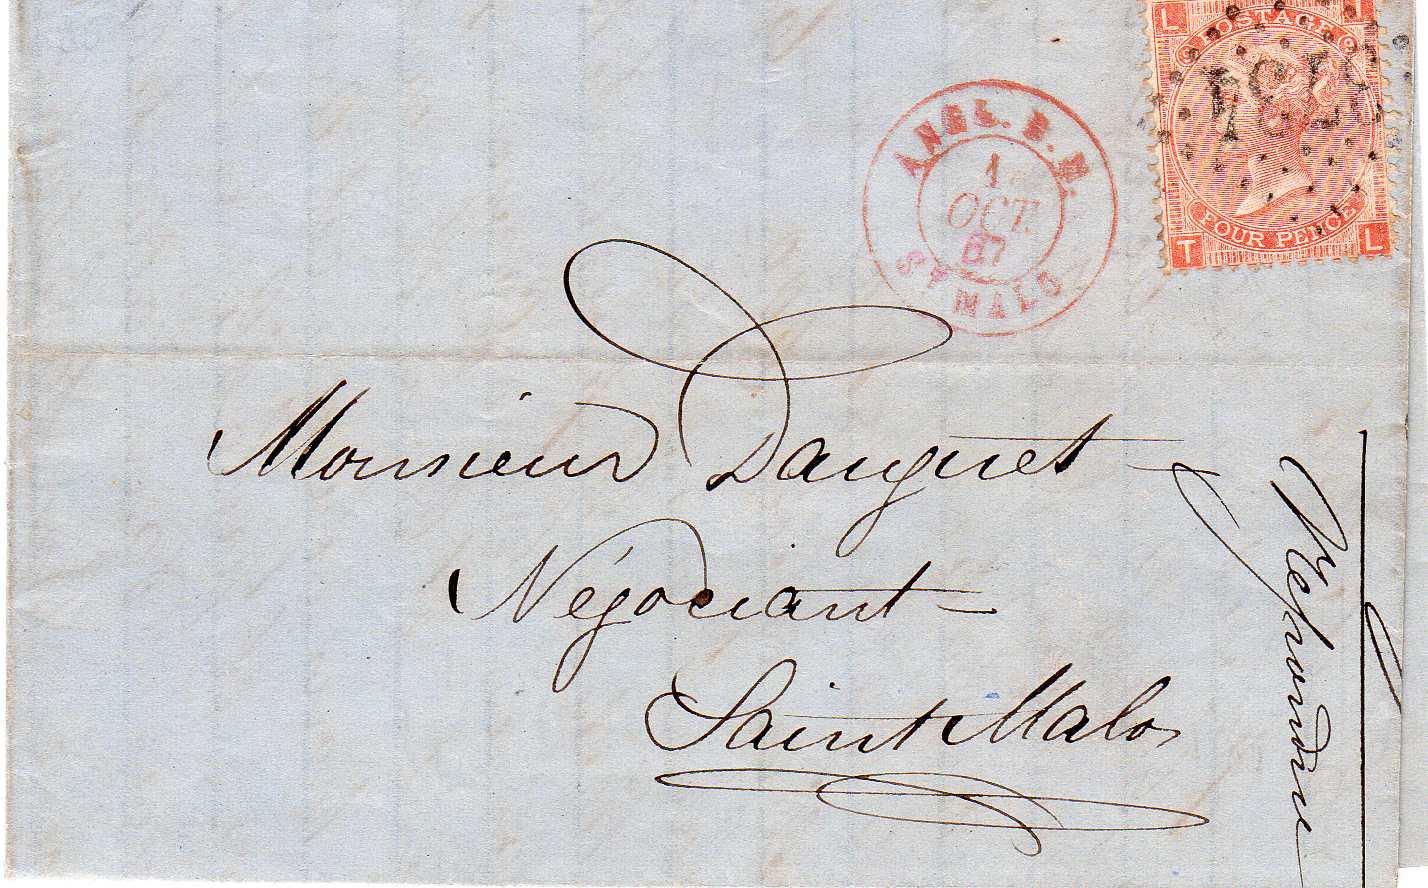 L
POSTAGE
9 9
FOUR PENCE
T L
ANGL. B. M.
1
OCT.
67
ST MALO
Monsieur Dauguet
Négociant
Saint Malo